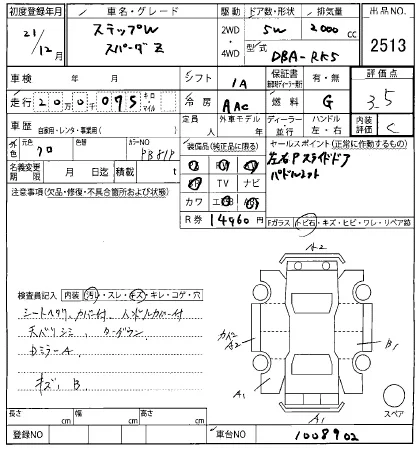 初度登録年月 車名・グレード 駆動 ドア数・形状 排気量 出品NO.
21/12月 ステップW スパーダZ 2WD・4WD 5W 2000 cc 2513
型式 DBA-RK5
車検 年 月 シフト IA 保証書 有・無 評価点
走行 キロ・マイル 冷房 AAC 燃料 G 3.5
車歴 自家用・レンタ・事業用( ) 定員 人 外車モデル ディーラー・並行 ハンドル 左・右 内装評価 C
外色 元色 クロ 色替 カラーNO PB81P
装備品(純正品に限る) セールスポイント(正常に作動するもの)
左右Pスライドドア
パドルシフト
名義変更期限 月 日迄 積載 t
TV ナビ
注意事項(欠品・修復・不具合箇所および状態)
カワ
R券 14960円
Fガラス トビ石・キズ・ヒビ・ワレ・リペア跡
A2
検査員記入 内装 汚れ・スレ・キズ・キレ・コゲ・穴
シートヘタリ、カバー付、ハンドルカバー付
天バリシミ、ターダウン、
DミラーA
キズ、B
カバー A2
B1
A1
A1
スペア
長さ cm 幅 cm 高さ cm
登録NO 車台NO 1008902